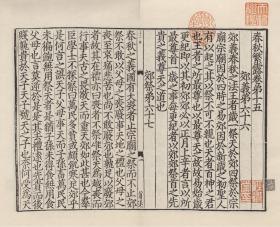 春秋繁露卷第十五
郊義第六十六
郊義春秋之法王者歲一祭天於郊四祭於宗
廟宗廟因於四時之易郊因於新歲之初聖人
有以起之其以祭不可不親也天者百神之君
也王者之所最尊也以最尊天之故故易始歲
更紀即以其初郊郊必以正月上辛者言以所
最尊首一歲之事每更紀者以郊郊祭首之先
貴之義尊天之道也
郊祭第六十七
春秋之義國有大喪者止宗廟之祭而不止郊
祭不敢以父母之喪廢事天地之禮也父母之
喪至哀痛悲苦也尚不敢廢郊也孰足以廢郊
者故其在禮亦曰喪者不祭唯祭天爲越喪而
行事夫古之畏敬天而重天郊如此甚也今羣
臣學士不探察曰萬民多貧或頗饑寒足郊乎
是何言之誤天子父母事天而子孫畜萬民民
未徧飽無用祭天者是猶子孫未得食無用食
父母也言莫逆於是是其去禮遠也先貴而後
賤孰貴於天子天子號天之子也奈何受爲天